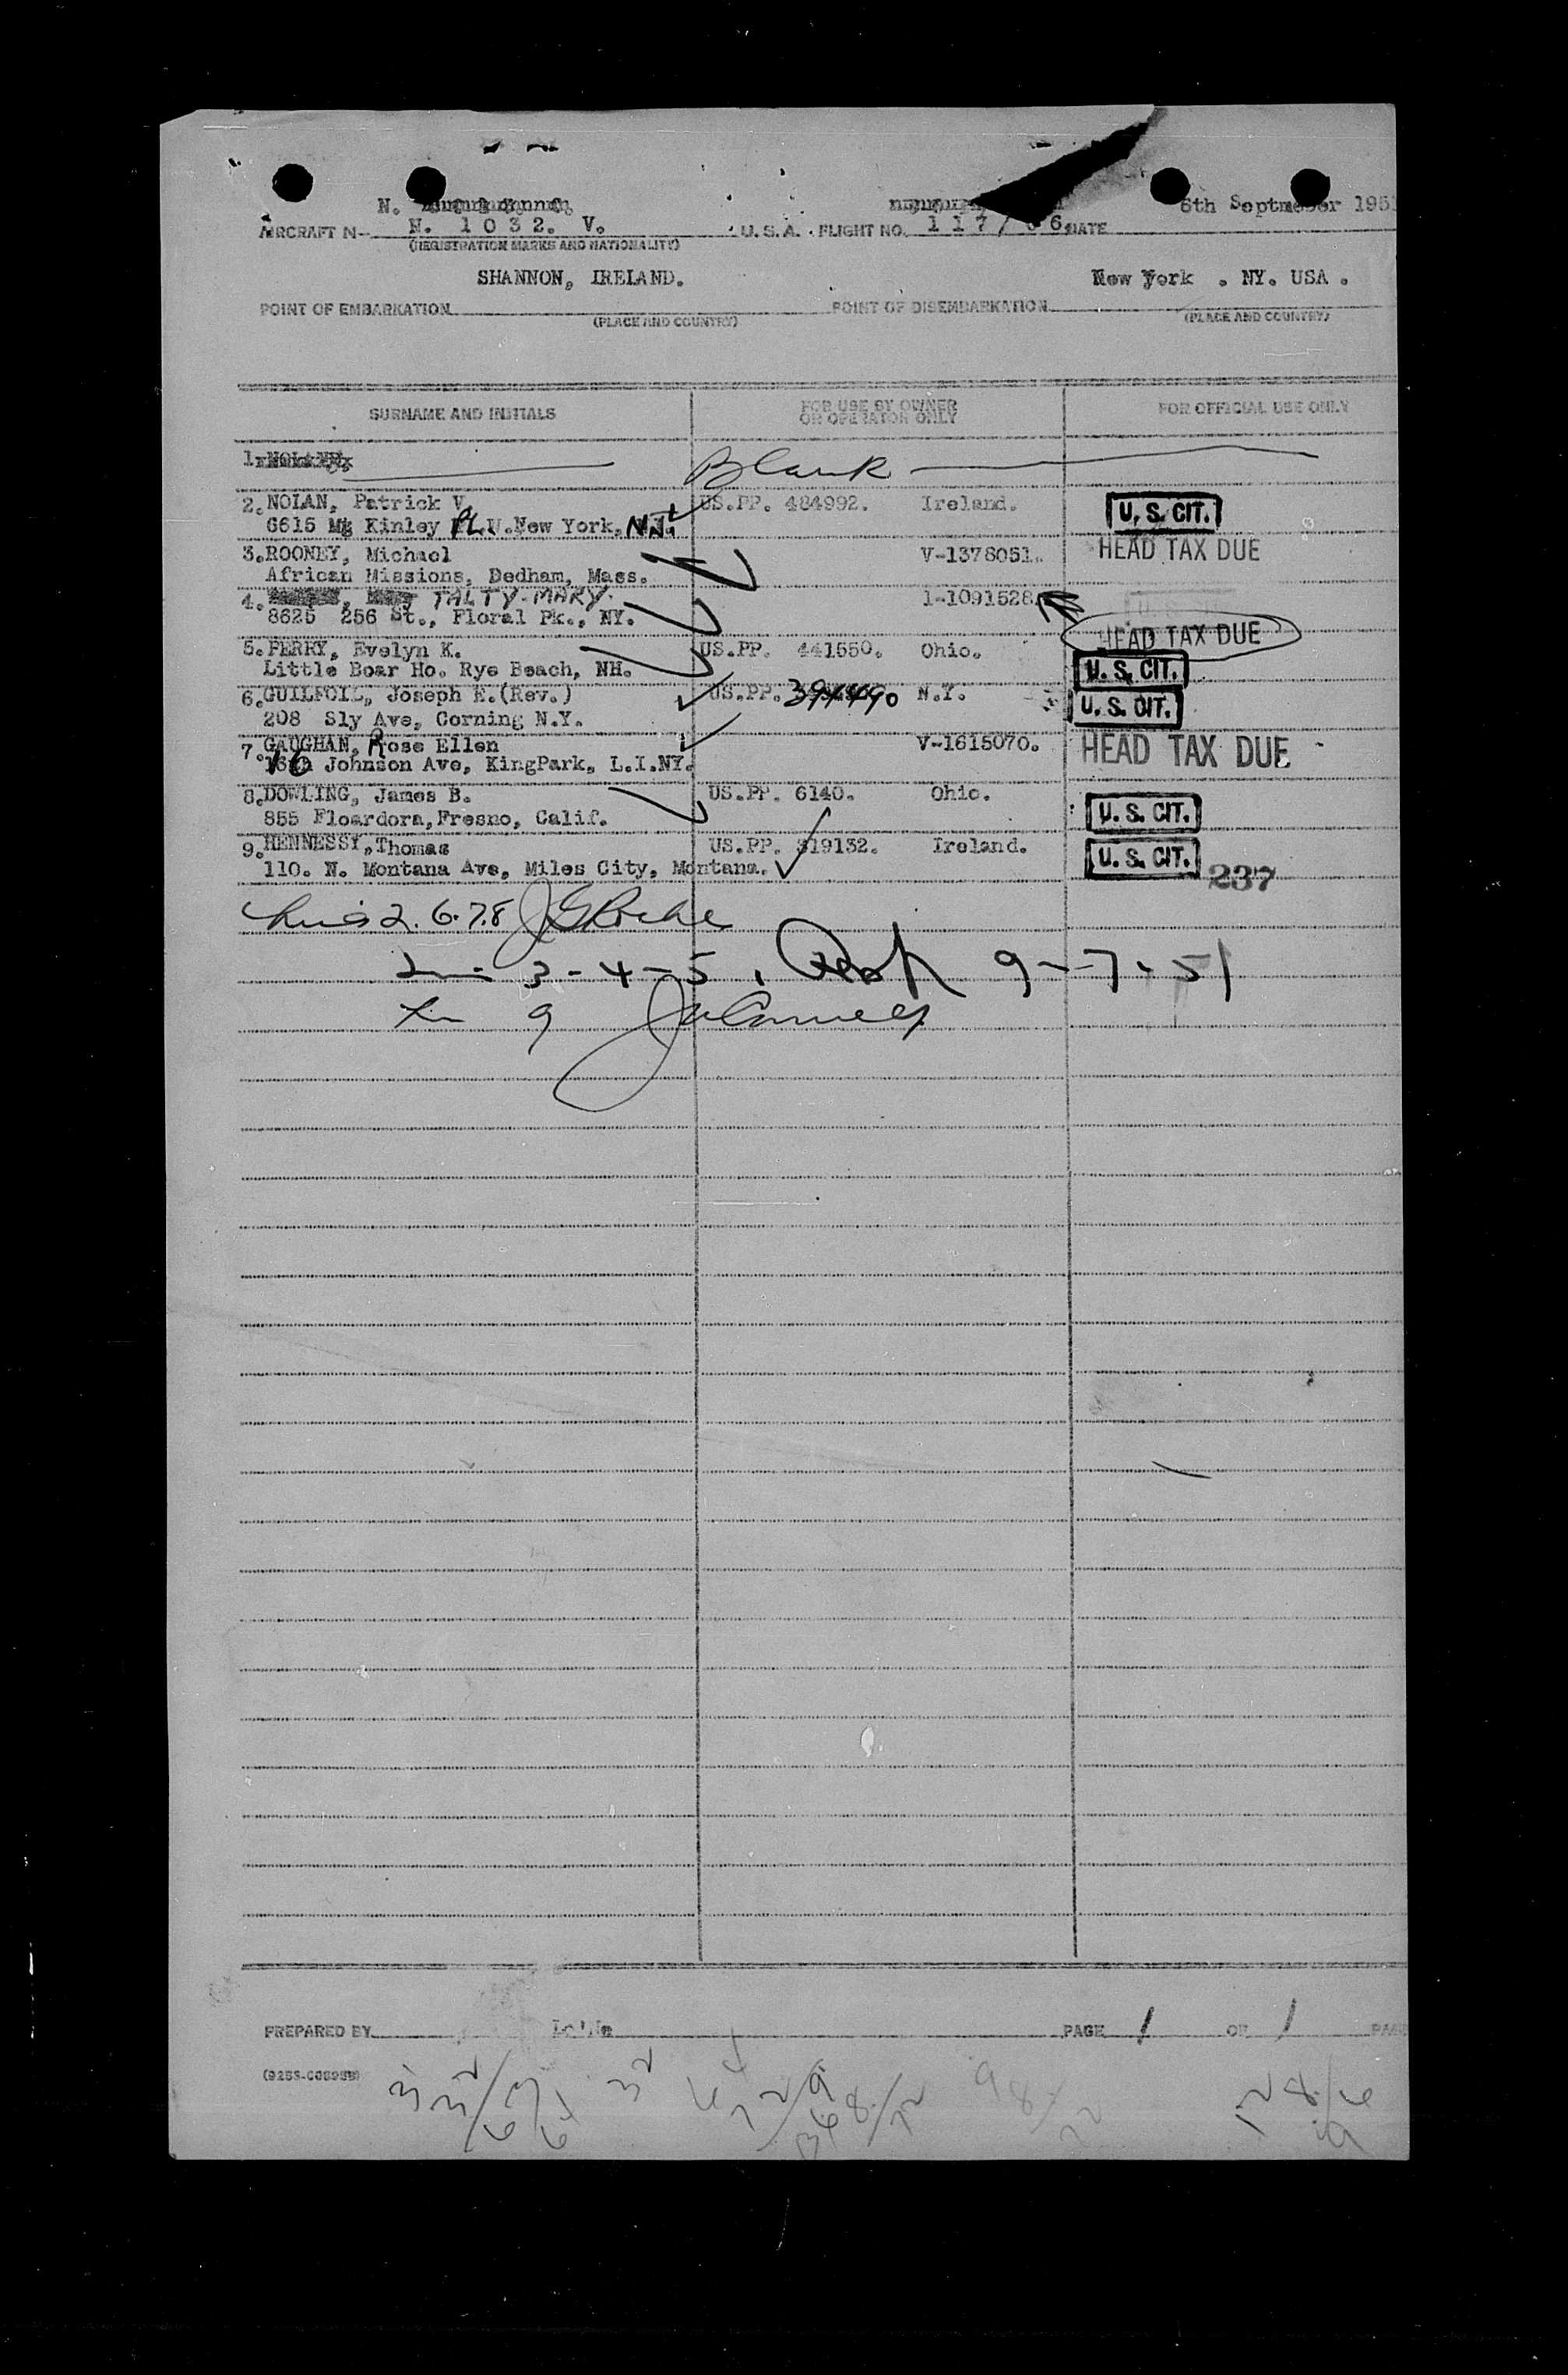 N.
6th Septmeber 195
AIRCRAFT N N. 1 0 3 2. V. U.S.A. FLIGHT NO. 1 1 7 / 6 DATE
(REGISTRATION MARKS AND NATIONALITY)
SHANNON, IRELAND. New York . NY. USA .
POINT OF EMBARKATION POINT OF DISEMBARKATION
(PLACE AND COUNTRY) (PLACE AND COUNTRY)
SURNAME AND INITIALS FOR USE BY OWNER OR OPERATOR ONLY FOR OFFICIAL USE ONLY
1. Blank
2. NOLAN, Patrick V. US.PP. 484992. Ireland. U.S. CIT.
6615 Mc Kinley PL. New York, N.J.
3. ROONEY, Michael V-1378051. HEAD TAX DUE
African Missions, Dedham, Mass.
4. TALTY-MARY. 1-1091528.
8625 256 St., Floral Pk., NY. HEAD TAX DUE
5. PERRY, Evelyn K. US.PP. 441550. Ohio.
Little Boar Ho. Rye Beach, NH. U.S. CIT.
6. GUILFOIL, Joseph E.(Rev.) US.PP. 394490 N.Y. U.S. CIT.
208 Sly Ave, Corning N.Y.
7. GAUGHAN, Rose Ellen V-1615070. HEAD TAX DUE
16 Johnson Ave, KingPark, L.I.NY.
8. DOWLING, James B. US.PP. 6140. Ohio. U.S. CIT.
855 Floardora, Fresno, Calif.
9. HENNESSY, Thomas US.PP. 319132. Ireland. U.S. CIT.
110. N. Montana Ave, Miles City, Montana. 237
2. 6. 7. 8
3 - 4 - 5 . 9 - 7 - 51
9
PREPARED BY PAGE 1 OF 1